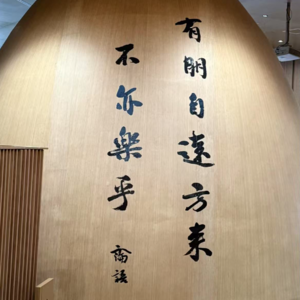 有朋自遠方来
不亦樂乎
論語